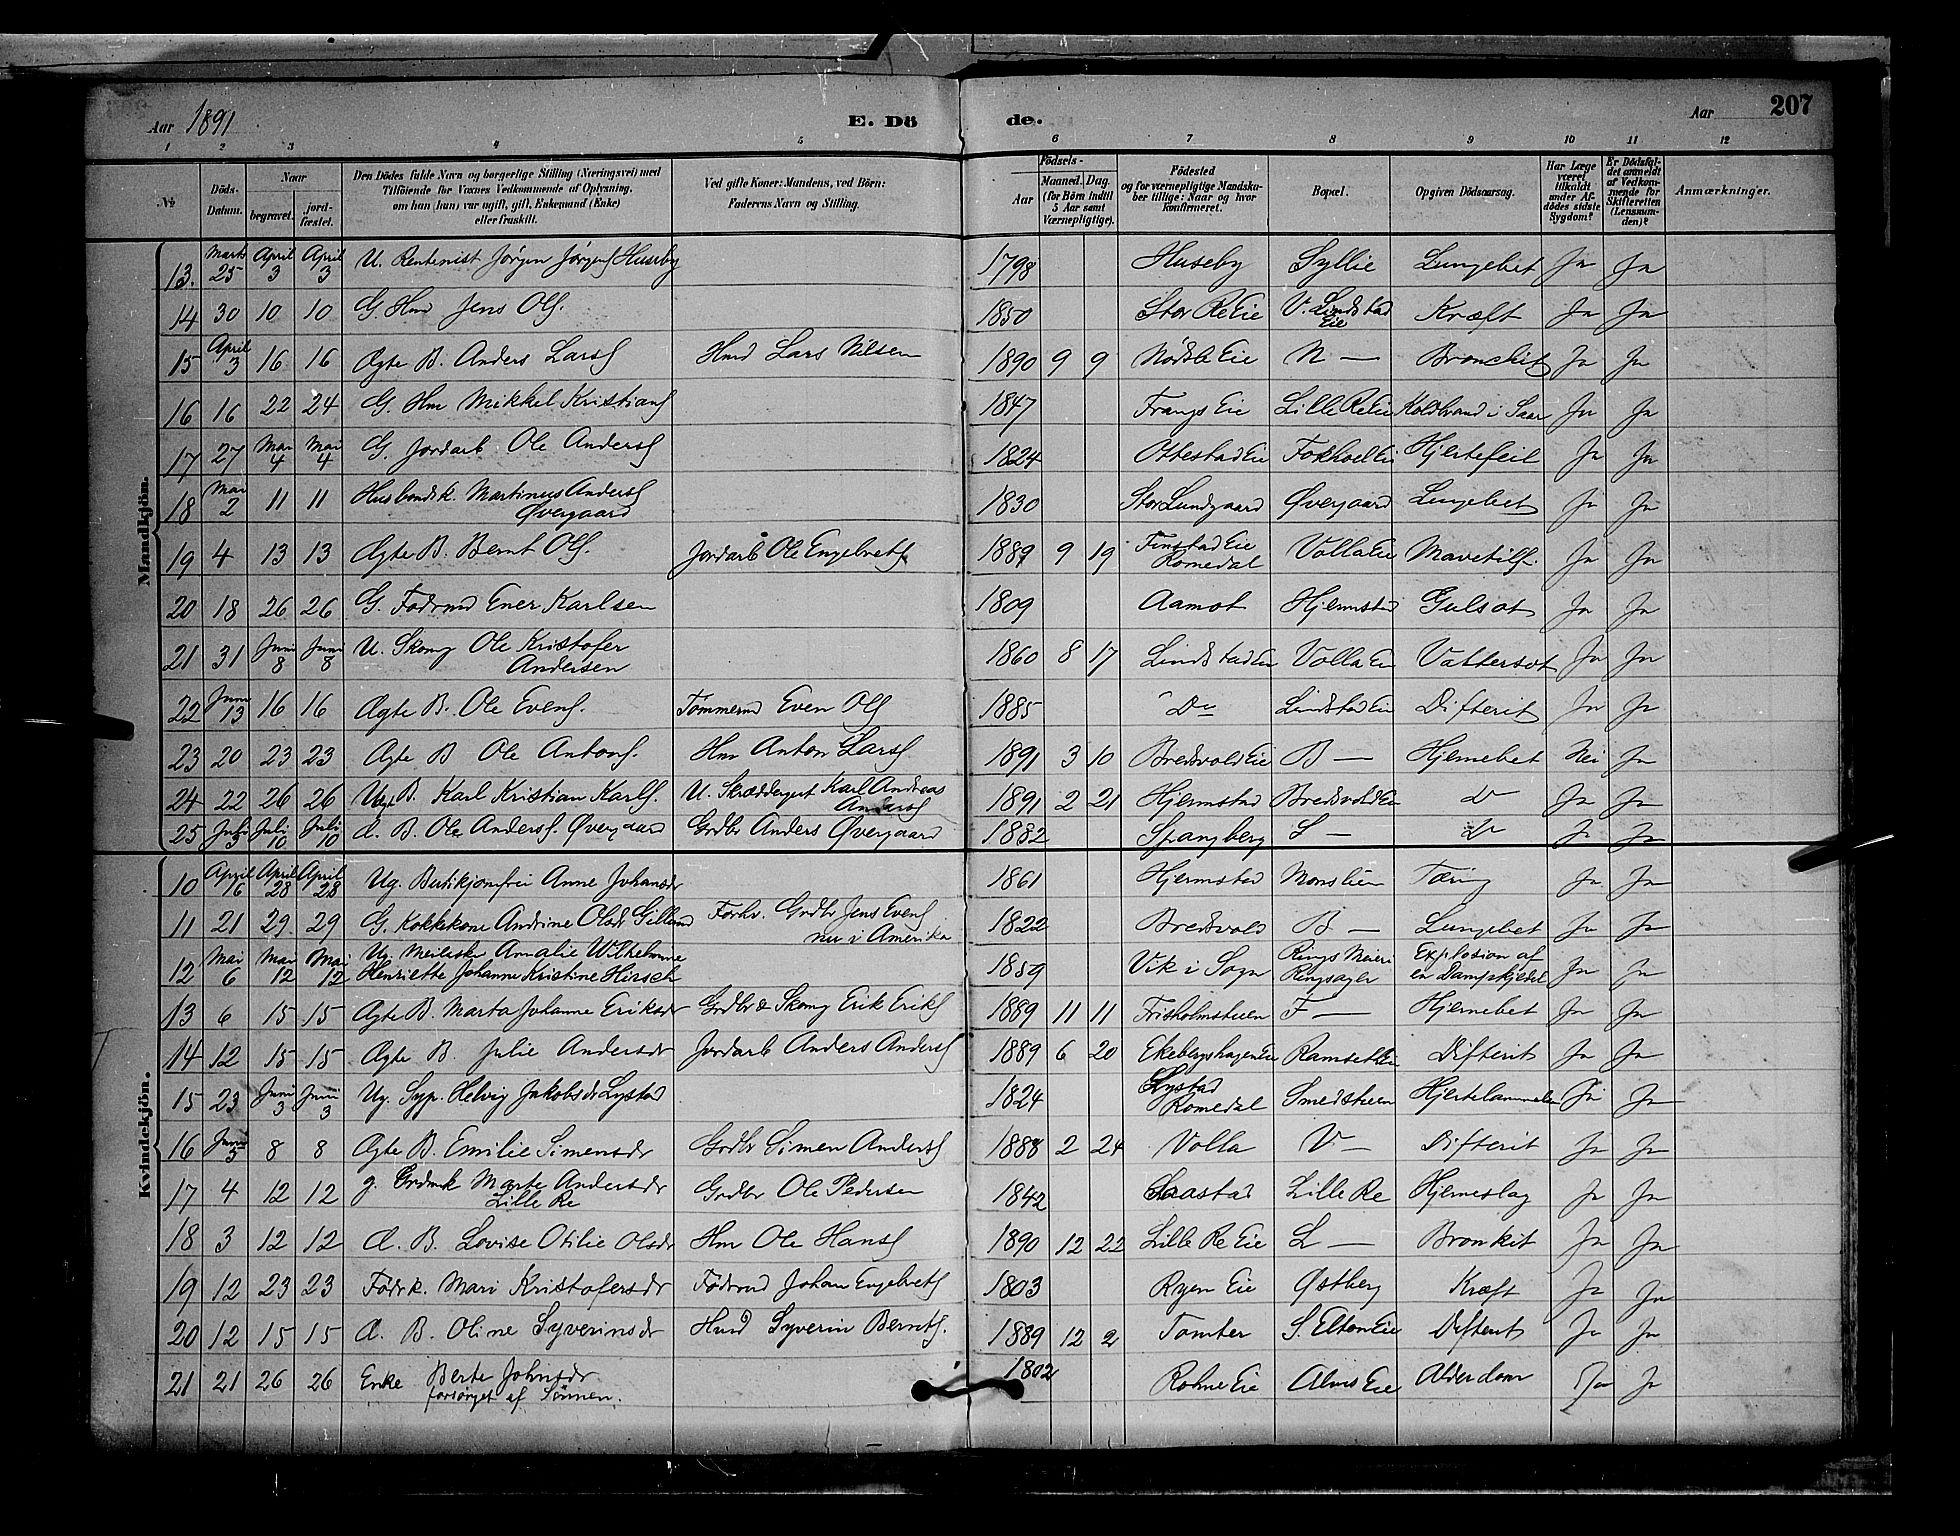 Aar 1891
E. Dö
de.
Aar
207
1 2 3 4 5 6 7 8 9 10 11 12
№
Döds-Datum.
Naar
begravet.
jord-fæstet.
Den Dödes fulde Navn og borgerlige Stilling (Næringsvei) med Tilföiende for Voxnes Vedkommende af Oplysning, om han (hun) var ugift, gift, Enkemand (Enke) eller fraskilt.
Ved gifte Koner: Mandens, ved Börn: Faderens Navn og Stilling.
Födsels-
Aar
Maaned. Dag.
(for Börn indtil 5 Aar samt Værnepligtige).
Födested og for værnepligtige Mandskaber tillige: Naar og hvor konfirmeret.
Bopæl.
Opgiven Dödsaarsag.
Har Læge været tilkaldt under Afdödes sidste Sygdom?
Er Dödsfaldet anmeldt af Vedkommende for Skifteretten (Lensmanden)?
Anmærkninger.
Mandkjön.
13. Marts 25 April 3 April 3 U. Rentenist Jørgen Jørgens Huseby 1798 Huseby Syllie Lungebet Ja Ja
14 30 10 10 G. Hmd Jens Ols. 1850 Stor Re Eie V. Lindstad Eie Kræft Ja Ja
15 April 3 16 16 Ægte B. Anders Lars Hmd Lars Nilsen 1890 9 9 Nordsle Eie N — Bronchit Ja Ja
16 16 22 24 G. Hm Mikkel Kristians 1847 Frangs Eie Lille Re Eie Koldbrand i Saar Ja Ja
17 27 Mai 4 Mai 4 G. Jordarb. Ole Anders 1824 Ottestad Eie Fokhoel Ei Hjertefeil Ja Ja
18 Mai 2 11 11 Husbondsk. Martinus Anders Øvergaard 1830 Stor Lundgaard Øvergaard Lungebet Ja Ja
19 4 13 13 Ægte B. Bernt Ols. Jordarb Ole Engebrets 1889 9 19 Finstad Eie Romedal Volla Eie Mavetilf. Ja Ja
20 18 26 26 G. Födrmd Ener Karlsen 1809 Aamot Hjelmstad Gulsot Ja Ja
21 31 Juni 8 Juni 8 U. Skomg Ole Kristofer Andersen 1860 8 17 Lindstad Eie Volla Eie Vattersot Ja Ja
22 Juni 13 16 16 Ægte B. Ole Evens. Tömmermd Even Ols 1885 Do Lindstad Eie Difterit Ja Ja
23 20 23 23 Ægte B Ole Antons. Hm Anton Lars 1891 3 10 Bredvold Eie B — Hjernebet Nei Ja
24 22 26 26 Uægt B. Karl Kristian Karls. U. Skræddergut Karl Andreas Anders 1891 2 21 Hjelmstad Bredvold Eie Do Ja Ja
25 Juli 3 Juli 10 Juli 10 Æ. B. Ole Anders. Øvergaard Grdbr Anders Øvergaard 1882 Spangberg S — Do Ja Ja
Kvindekjön.
10 April 16 April 28 April 28 Ug. Butikjomfru Anne Johansdr 1861 Hjelmstad Monslien Tæring Ja Ja
11 21 29 29 G. Kokkekone Andrine Olsdr Gillund Forhv. Grdbr Jens Evens nu i Amerika 1822 Bredvold B — Lungebet Ja Ja
12 Mai 6 Mai 12 Mai 12 Ug. Meierske Amalie Wilhelmine Henriette Johanne Kristine Hirsch 1859 Vik i Sogn Rings Meieri Ringsager Explosion af en Dampkjedel Ja Ja
13 6 15 15 Ægte B. Marta Johanne Eriksdr Grdbr & Skomg Erik Eriks 1889 11 11 Frisholmstuen F — Hjernebet Ja Ja
14 12 15 15 Ægte B. Julie Andersdr Jordarb Anders Anders 1889 6 20 Ekebergshagen Eie Ramset Eie Difterit Ja Ja
15 23 Juni 3 Juni 3 Ug. Syp. Helvig Jakobsdr Lystad 1824 Lystad Romedal Smedstuen Hjertelammelse Ja Ja
16 Juni 5 8 8 Ægte B. Emilie Simensdr Grdbr Simen Anders 1888 2 24 Volla V — Difterit Ja Ja
17 4 12 12 g. Grdmk Marte Andersdr Lille Re Grdbr Ole Pedersen 1842 Saastad Lille Re Hjerneslag Ja Ja
18 3 12 12 Æ. B. Lovise Otilie Olsdr Hm Ole Hans 1890 12 22 Lille Re Eie L — Bronkit Ja Ja
19 12 23 23 Födrk. Mari Kristofersdr Födrmd Johan Engebrets 1803 Ryen Eie Østberg Kræft Ja Ja
20 12 15 15 Æ. B. Oline Syverinsdr Husd Syverin Bernts. 1889 12 2 Tomter S. Elton Eie Difterit Ja Ja
21 21 26 26 Enke Berte Johnsdr forsörget af Sönnen. 1802 Rohne Eie Alms Eie Alderdom Ja Ja